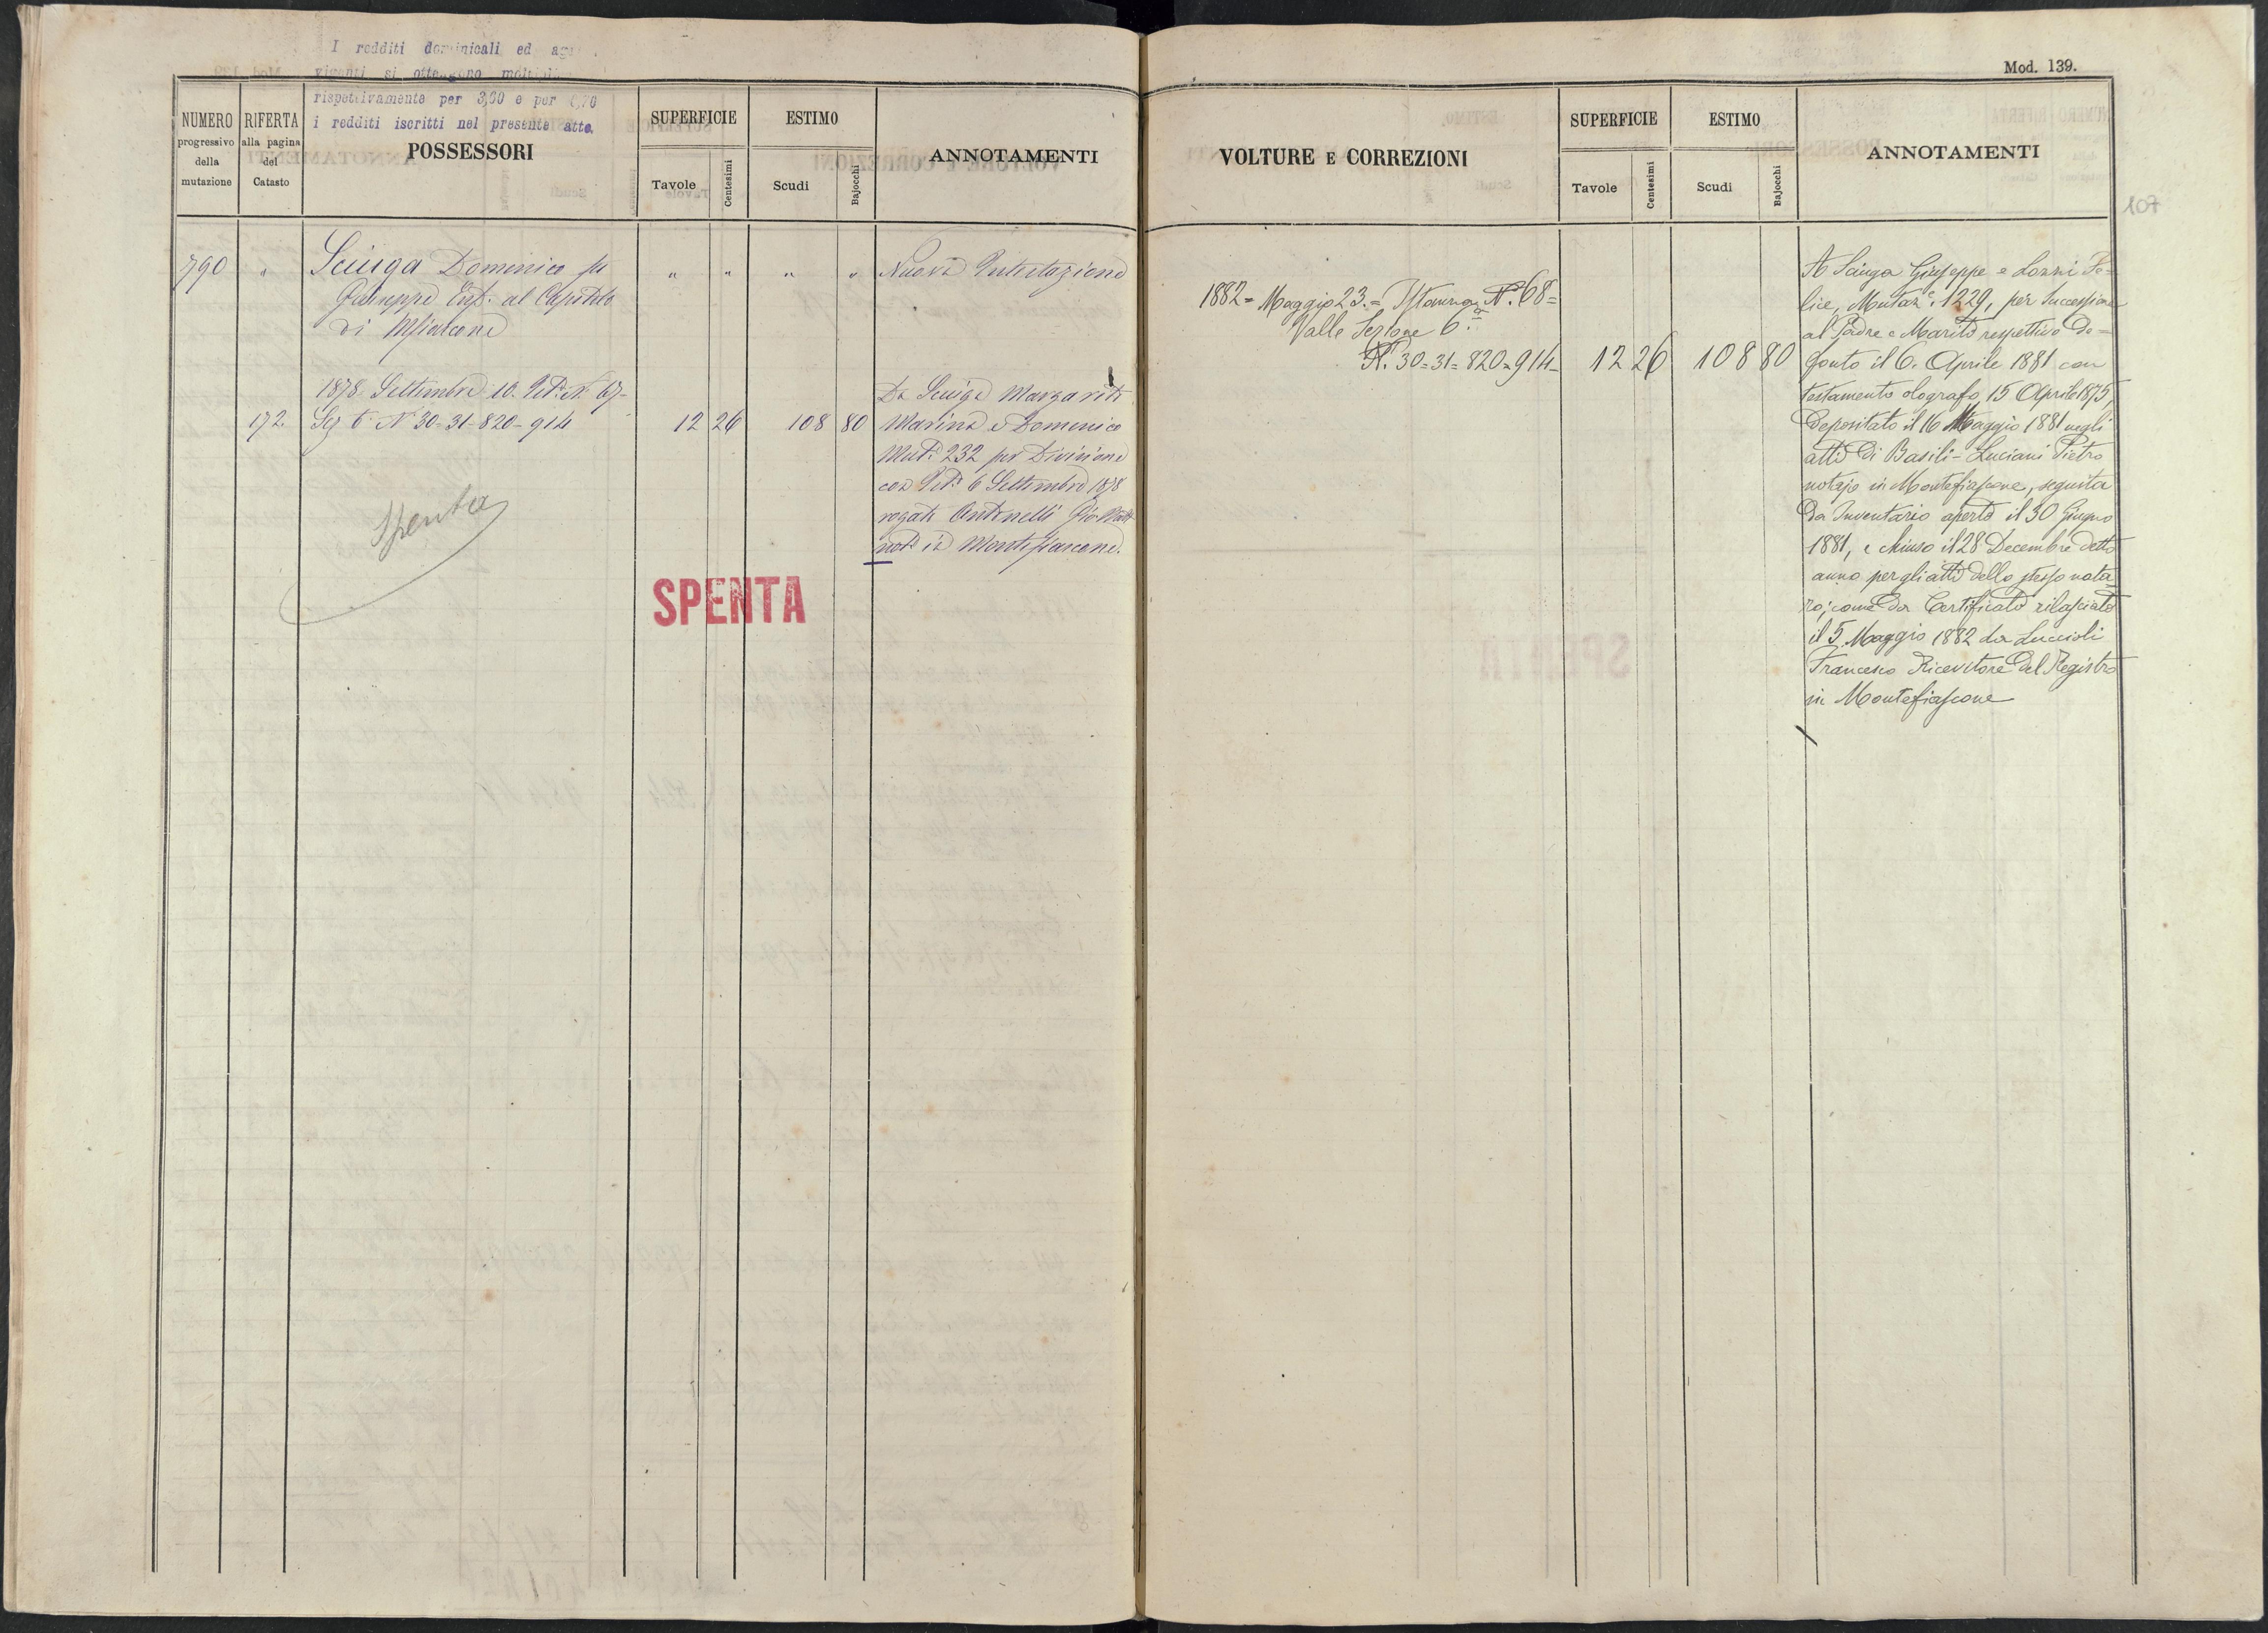 I redditi dominicali ed
si ottengono
rispettivamente per 3,60 e per
i redditi iscritti nel presente atto.
NUMERO
progressivo
della
mutazione
RIFERTA
alla pagina
del
Catasto
POSSESSORI
SUPERFICIE
Tavole
Centesimi
ESTIMO
Scudi
Bajocchi
ANNOTAMENTI
790 " Sciuga Domenico fu " " " " Nuova Intestazione
Giuseppe Enf. al Capitolo
di Mfiascone
1878 Settembre 10. N. 67-
172 Sez 6 N 30-31-820-914 12 26 108 80
Da Sciuga Margarita
Marina e Domenico
Mut. 232 per Divisione
con 6 Settembre 1878
rogato Antonelli
not. in Montefiascone.
Spenta
SPENTA
Mod. 139.
VOLTURE E CORREZIONI
SUPERFICIE
Tavole
Centesimi
ESTIMO
Scudi
Bajocchi
ANNOTAMENTI
107
1882= Maggio 23.= Istanza N.º 68=
Valle Sezione 6.ª
N.i 30=31=820=914- 12 26 108 80
A Sciuga Giuseppe e Lozzi Fe=
lice, Mutaz.e 1229, per Successione
al Padre e Marito respettivo De=
fonto il 6. Aprile 1881 con
testamento olografo, 15 Aprile 1875,
depositato il 16 Maggio 1881 negli
atti di Basili-Luciani Pietro
notajo in Montefiascone, seguita
da Inventario aperto il 30 Giugno
1881, e chiuso il 28 Decembre detto
anno per gli atti dello stesso nota=
ro; come da Certificato rilasciato
il 5 Maggio 1882 da Luccioli
Francesco Ricevitore del Registro
in Montefiascone